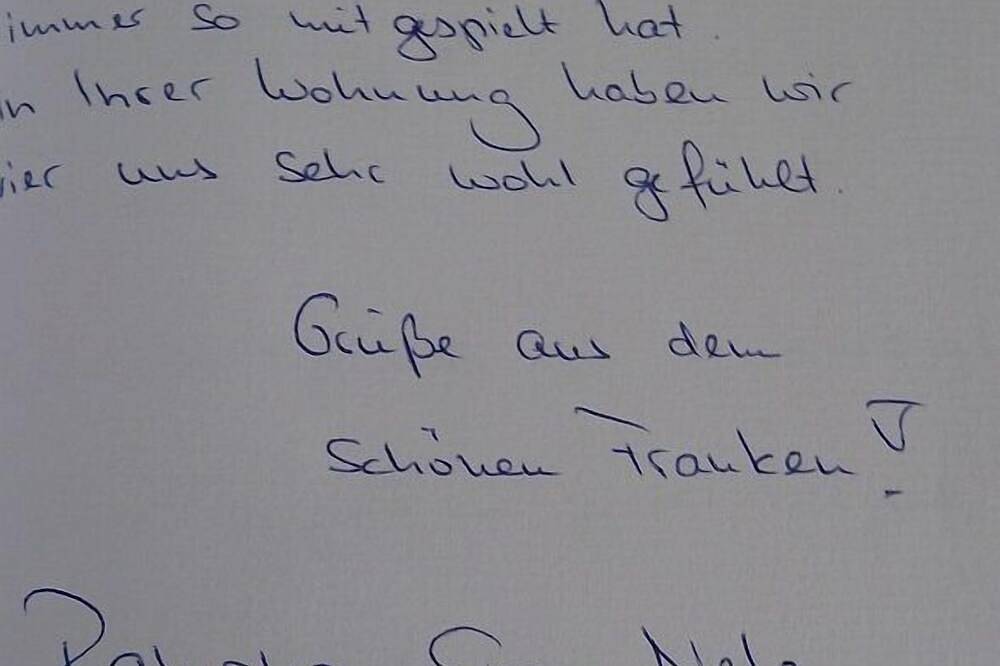 immer so mit gespielt hat.
In Ihrer Wohnung haben wir
vier uns sehr wohl gefühlt.
Grüße aus dem
schönen Franken!